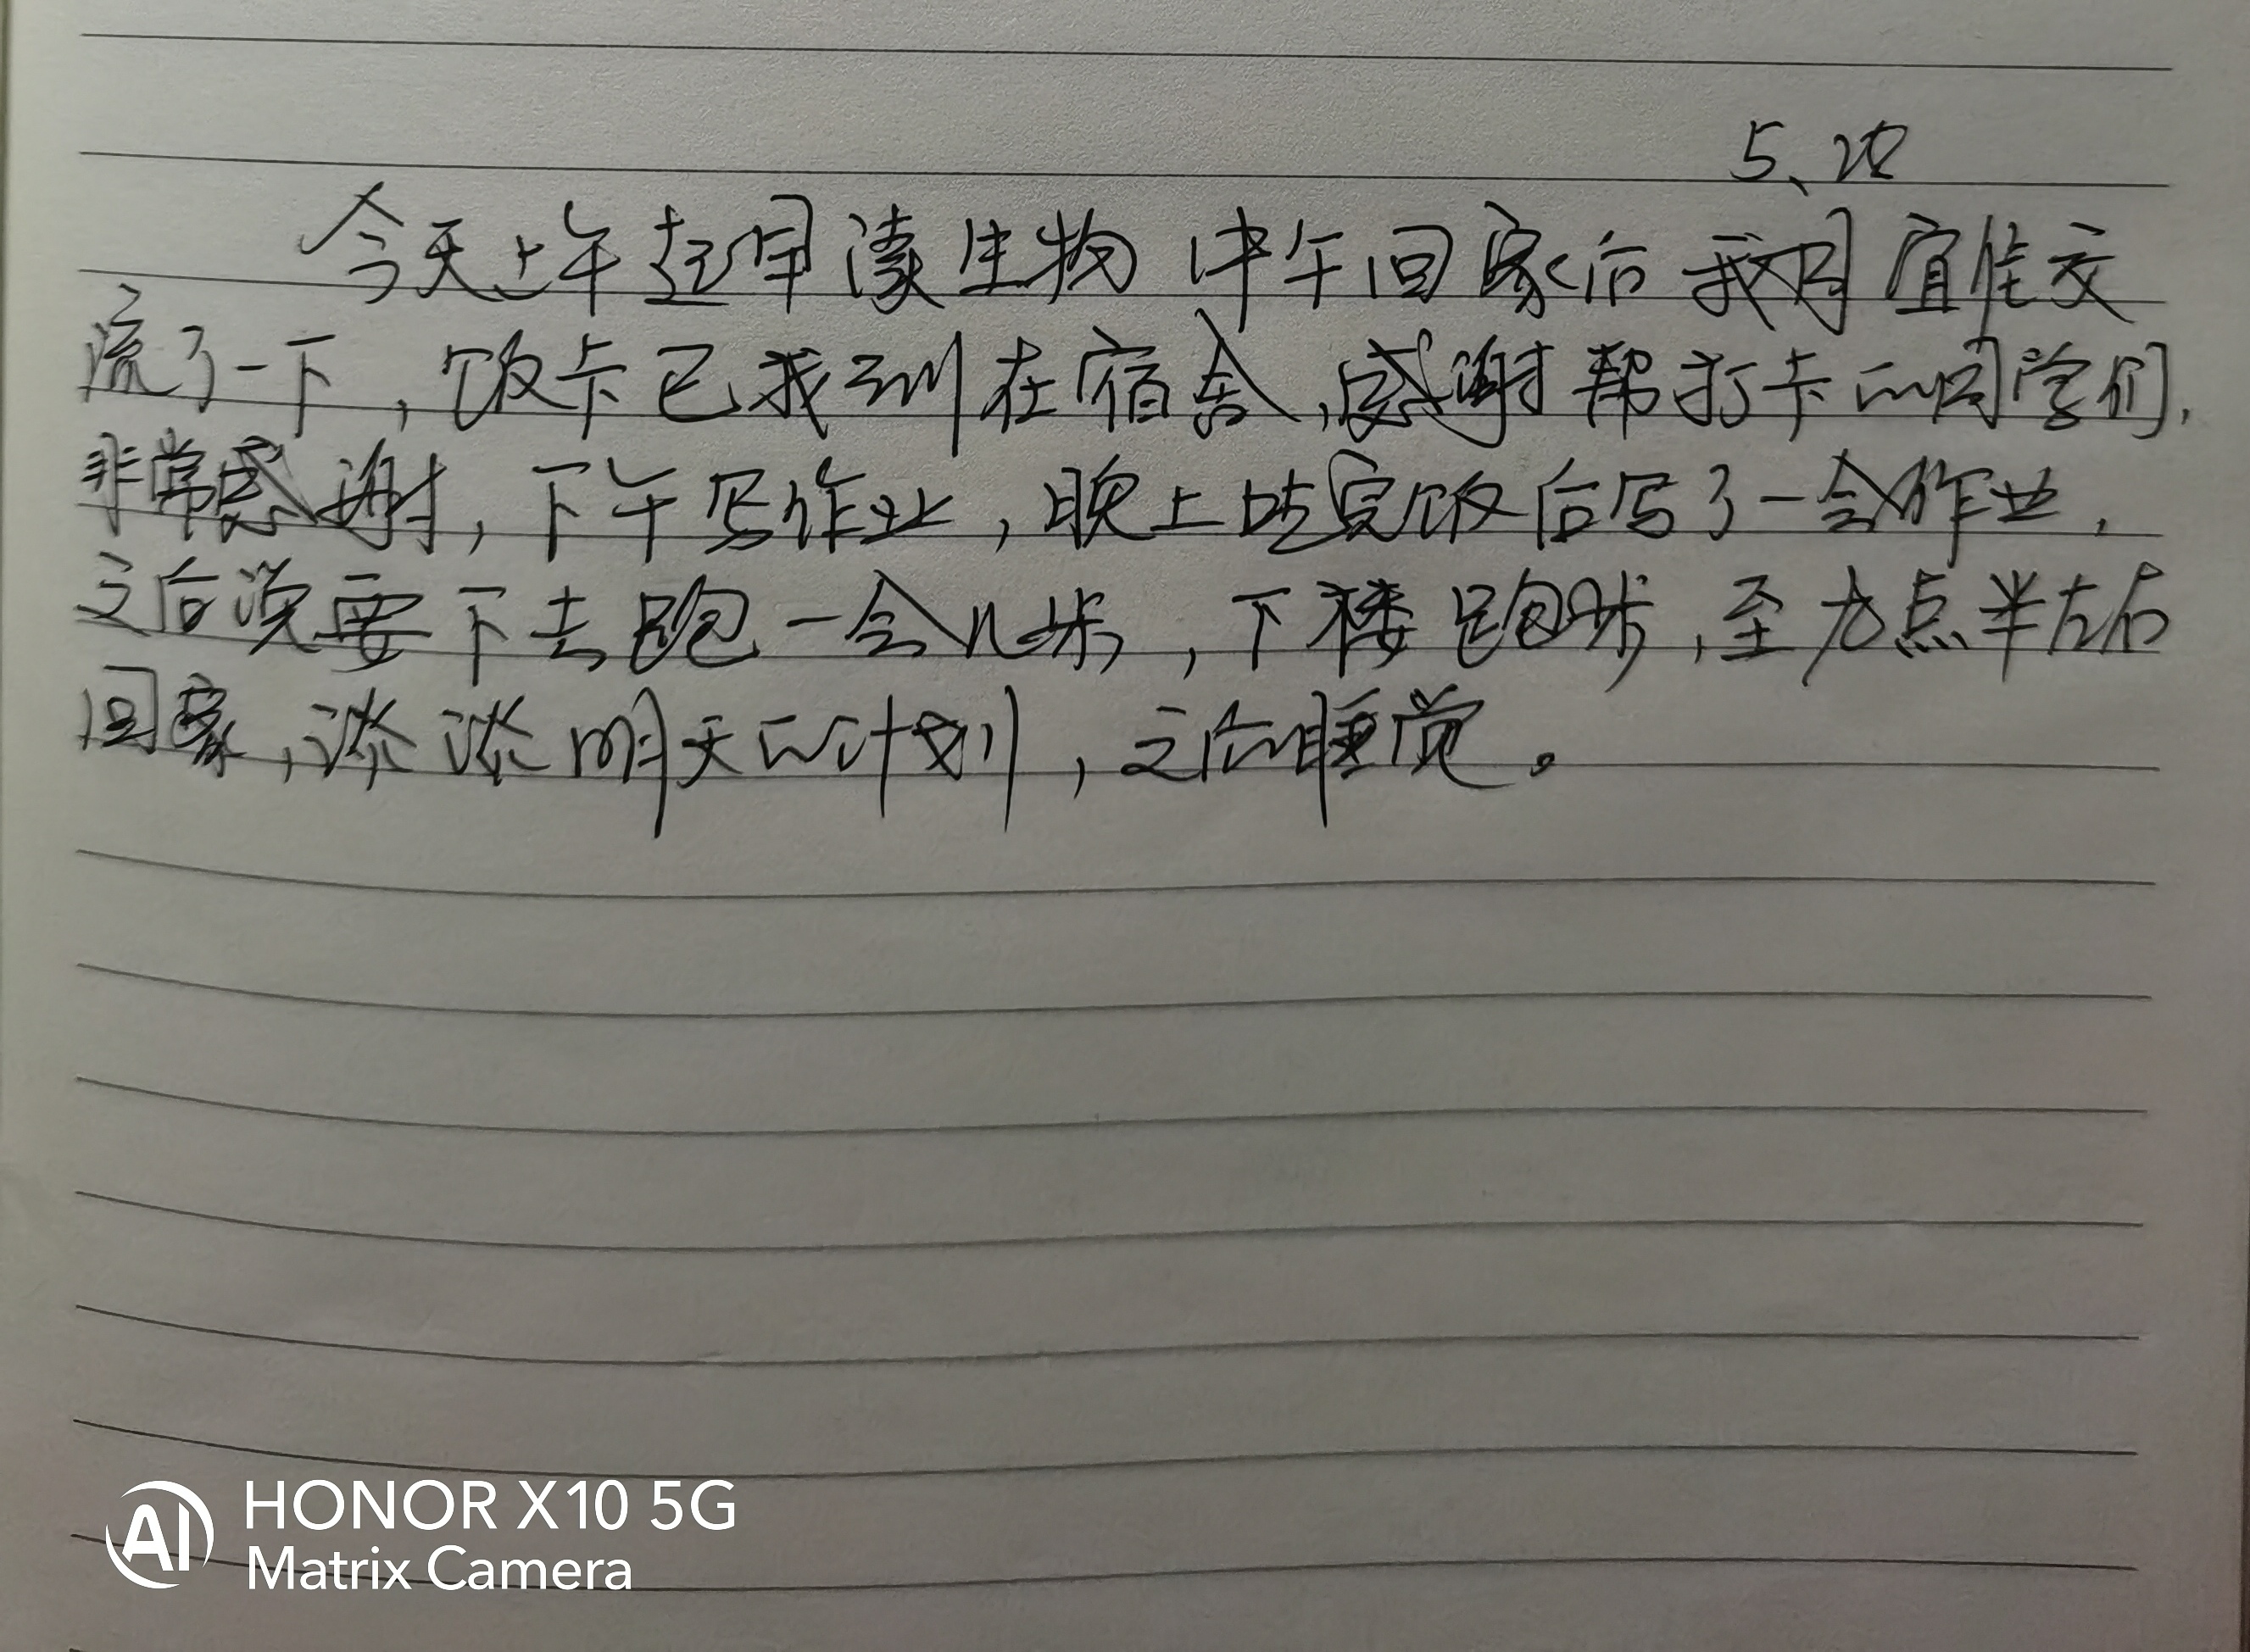 5、28
今天上午起早读生物 中午回家后 我同宜佳交
流了一下，饭卡已找到在宿舍，感谢帮打卡的同学们，
非常感谢，下午写作业，晚上吃完饭后写了一会作业，
之后说要下去跑一会儿步，下楼跑步，至九点半左右
回家，谈谈明天的计划，之后睡觉。
AI
HONOR X10 5G
Matrix Camera